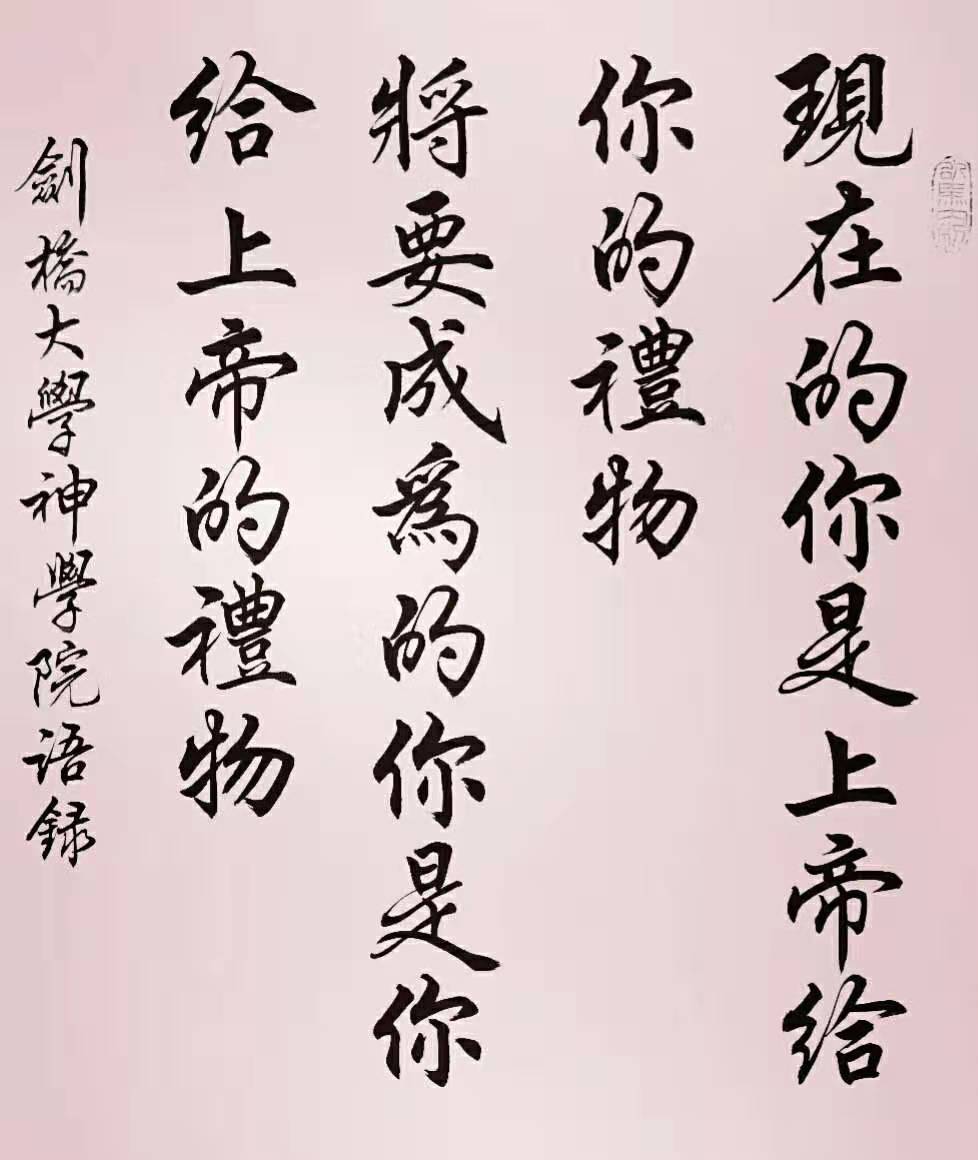 現在的你是上帝給
你的禮物
將要成為的你是你
給上帝的禮物
劍橋大學神學院语録